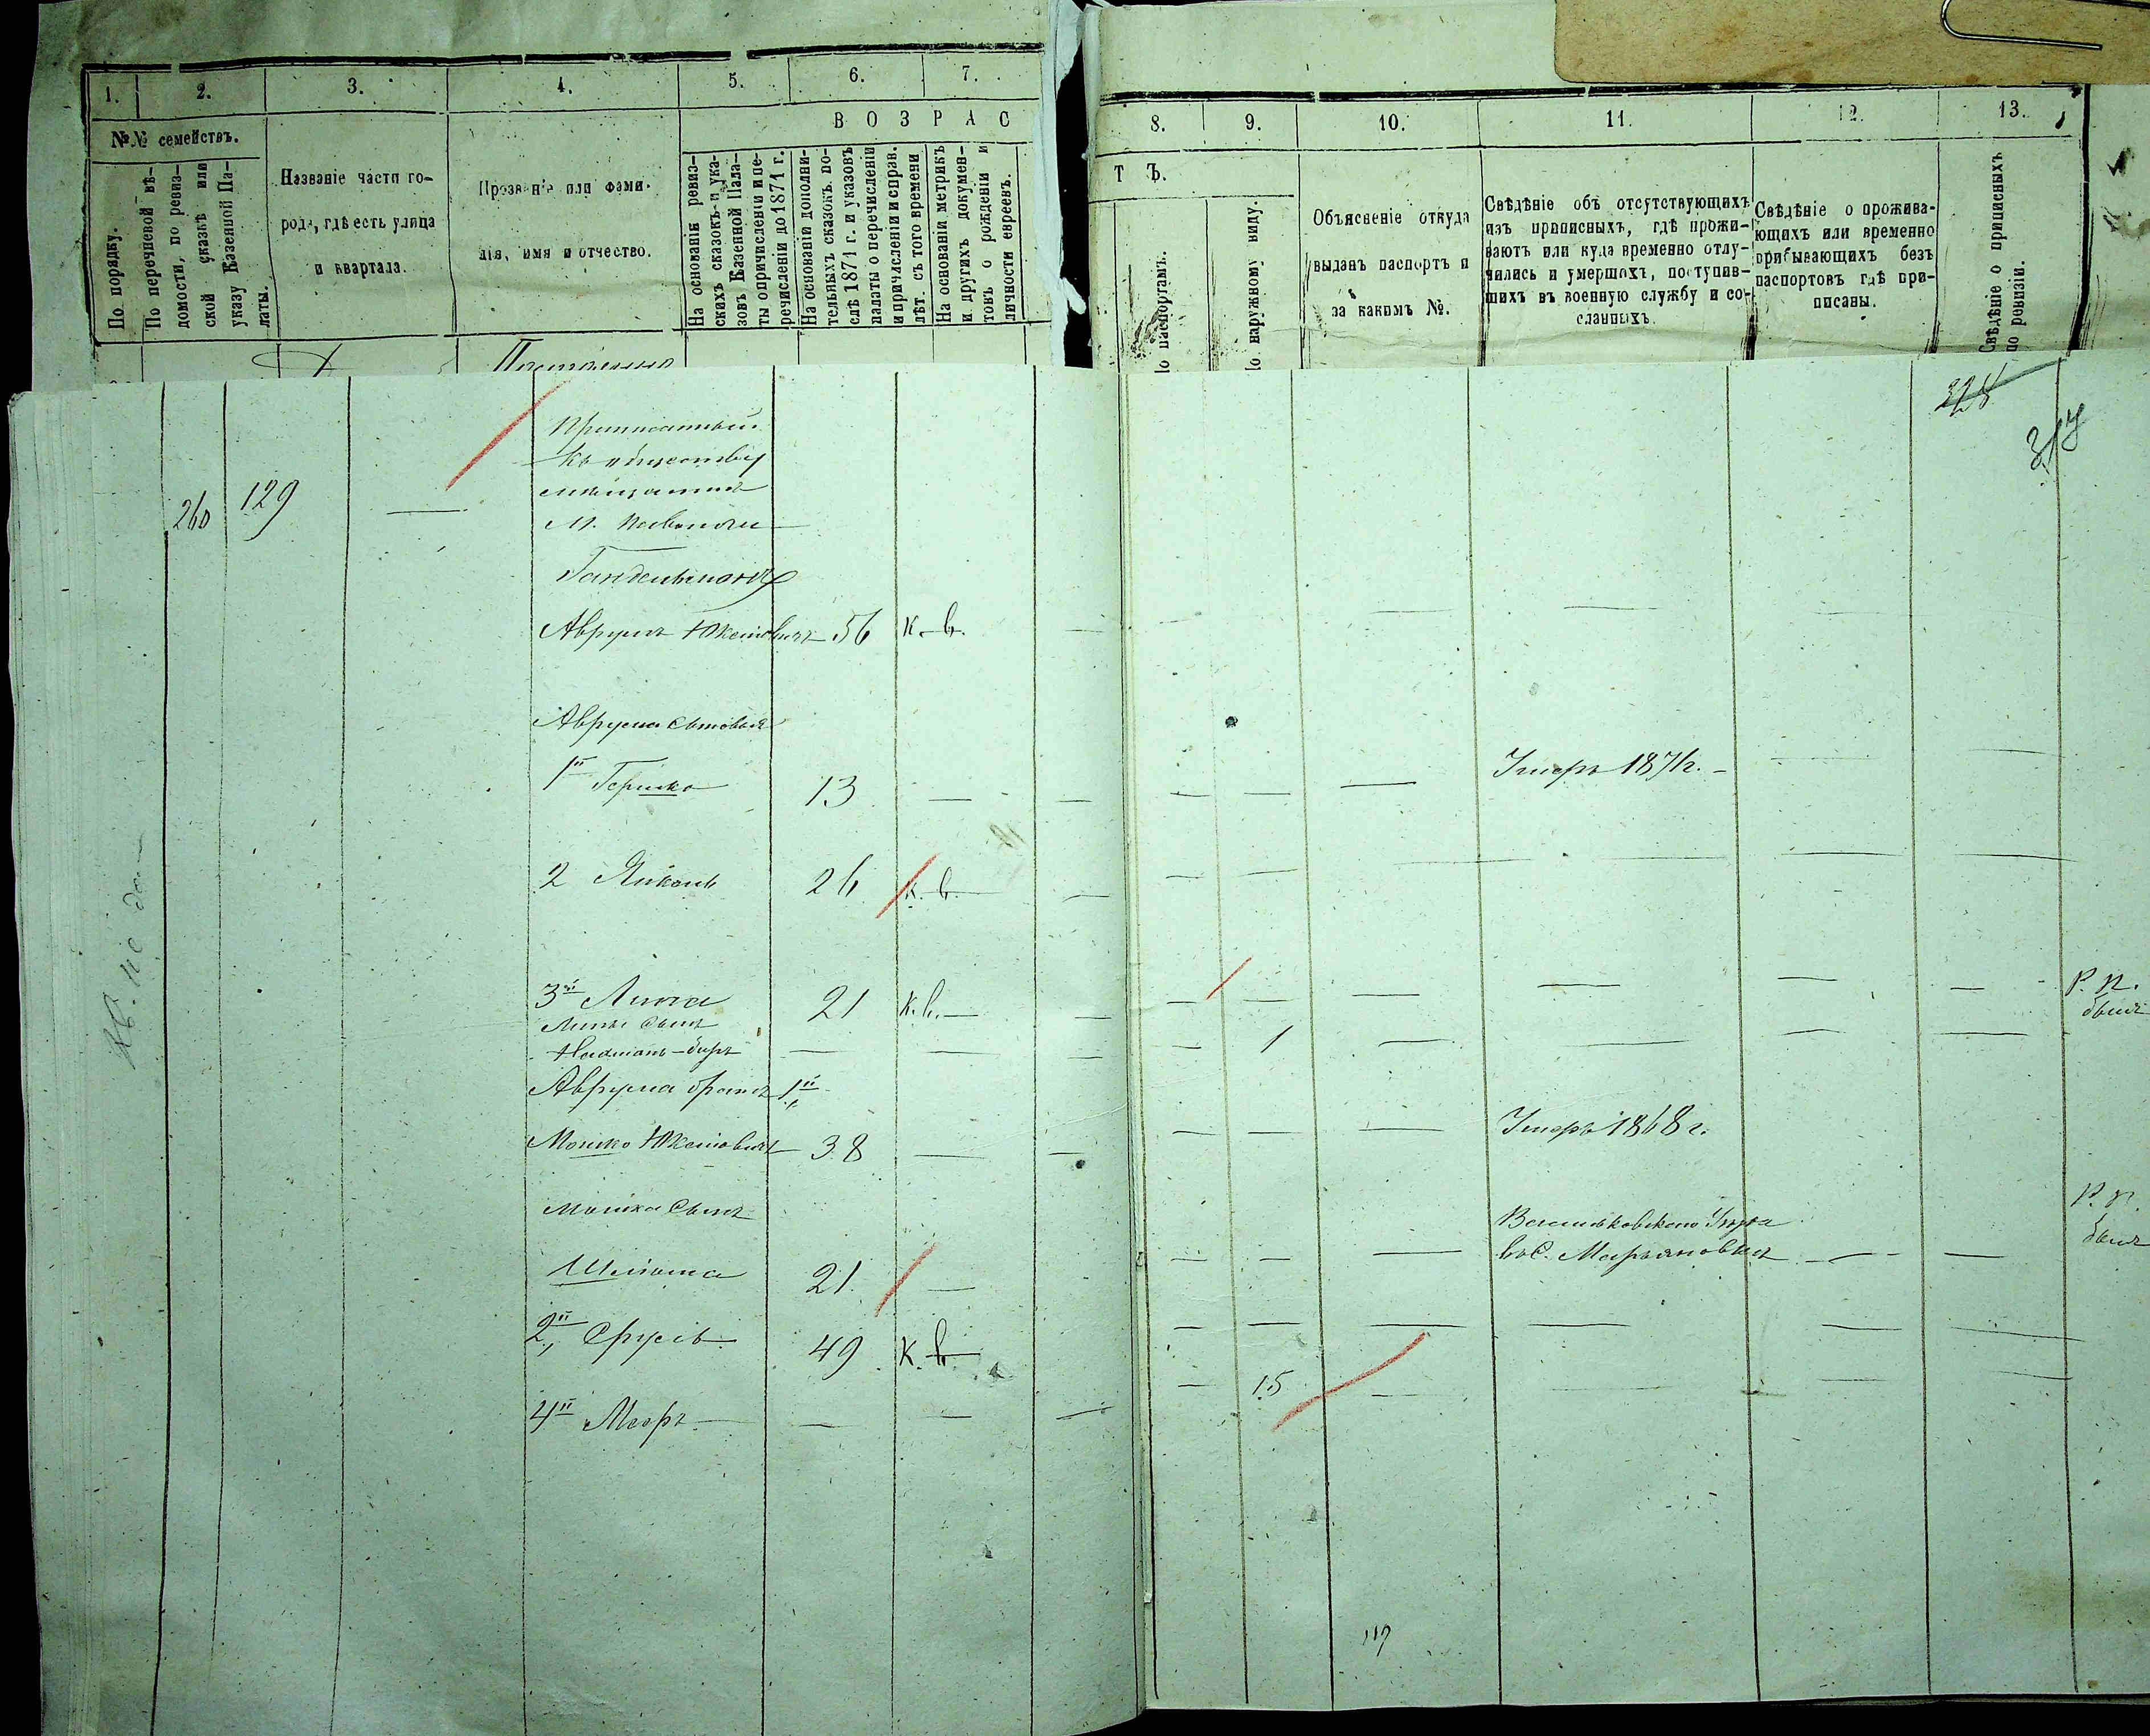 1. 2. 3. 4. 5. 6. 7.
№№ семействъ.
По порядку.
По перечневой вѣ-
домости, по ревиз-
ской сказкѣ или
указу Казенной Па-
латы.
Названіе части го-
рода, гдѣ есть улица
и квартала.
Прозваніе или фами-
лія, имя и отчество.
В О З Р А С
На основаніи ревиз-
скихъ сказокъ и ука-
зовъ Казенной Пала-
ты о причисленіи и пе-
речисленіи до 1871 г.
На основаніи дополни-
тельныхъ сказокъ по-
слѣ 1871 г. и указовъ
палаты о перечисленіи
и причисленіи и справ.
лѣт. съ того времени
На основаніи метрикъ
и другихъ докумен-
товъ о рожденіи и
личности евреевъ.
8. 9. 10. 11. 12. 13.
Т Ъ.
По паспортамъ.
По наружному виду.
Объясненіе откуда
выданъ паспортъ и
за какимъ №.
Свѣдѣніе объ отсутствующихъ
изъ приписныхъ, гдѣ прожи-
ваютъ или куда временно отлу-
чились и умершихъ, поступив-
шихъ въ военную службу и со-
сланныхъ.
Свѣдѣніе о прожива-
ющихъ или временно
прибывающихъ безъ
паспортовъ гдѣ при-
писаны.
Свѣдѣніе о приписныхъ
по ревизіи.
Приписанный
къ обществу
мѣщанинъ
М.
260 129 —
Аврумъ Юкелювичъ 56 к. в. — — — —
Аврума сыновья
1й Гершко 13 — — — — — Умеръ 1871 г. — — —
2 Янкель 26 к. в. — — — — — — —
3й Липа 21 к. в. — — — — — — Р. п.
былъ
Липы сынъ
— — — — 1 — — — —
Аврума братья 1й
Мошко Юкелювичъ 38 — — — — — Умеръ 1868 г.
Мошка сынъ
Васильковскаго Уѣзда
въ С. Марьяновкѣ
Р. п.
былъ
Шлюма 21 — — — — — —
2й Сруль 49 к. в. — — — — — —
4й Мееръ — — — — 15 — — — —
119